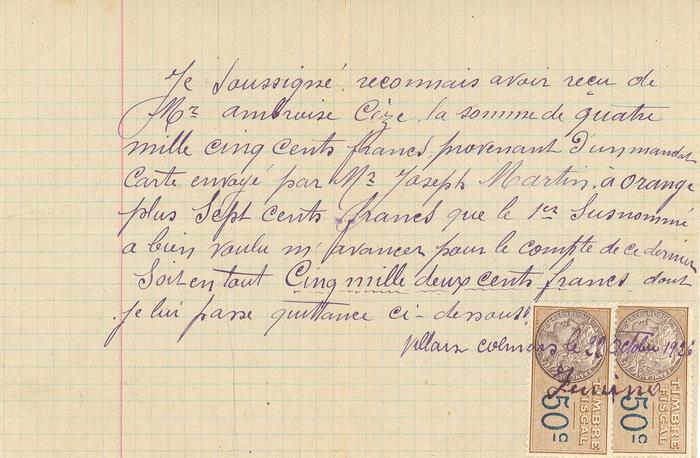 Je soussigné, reconnais avoir reçu de
Mr ambroise Cèze, la somme de quatre
mille cinq cents francs, provenant d'un mandat
Carte envoyé par Mr Joseph Martin, à orange
plus Sept cents francs que le 1er Susnommé
a bien voulu m'avancer pour le compte de ce dernier
Soit en tout Cinq mille deux cents francs dont
je lui passe quittance ci-dessous.
Villars colmars le 22 octobre 1926
TIMBRE FISCAL 50c
TIMBRE FISCAL 50c